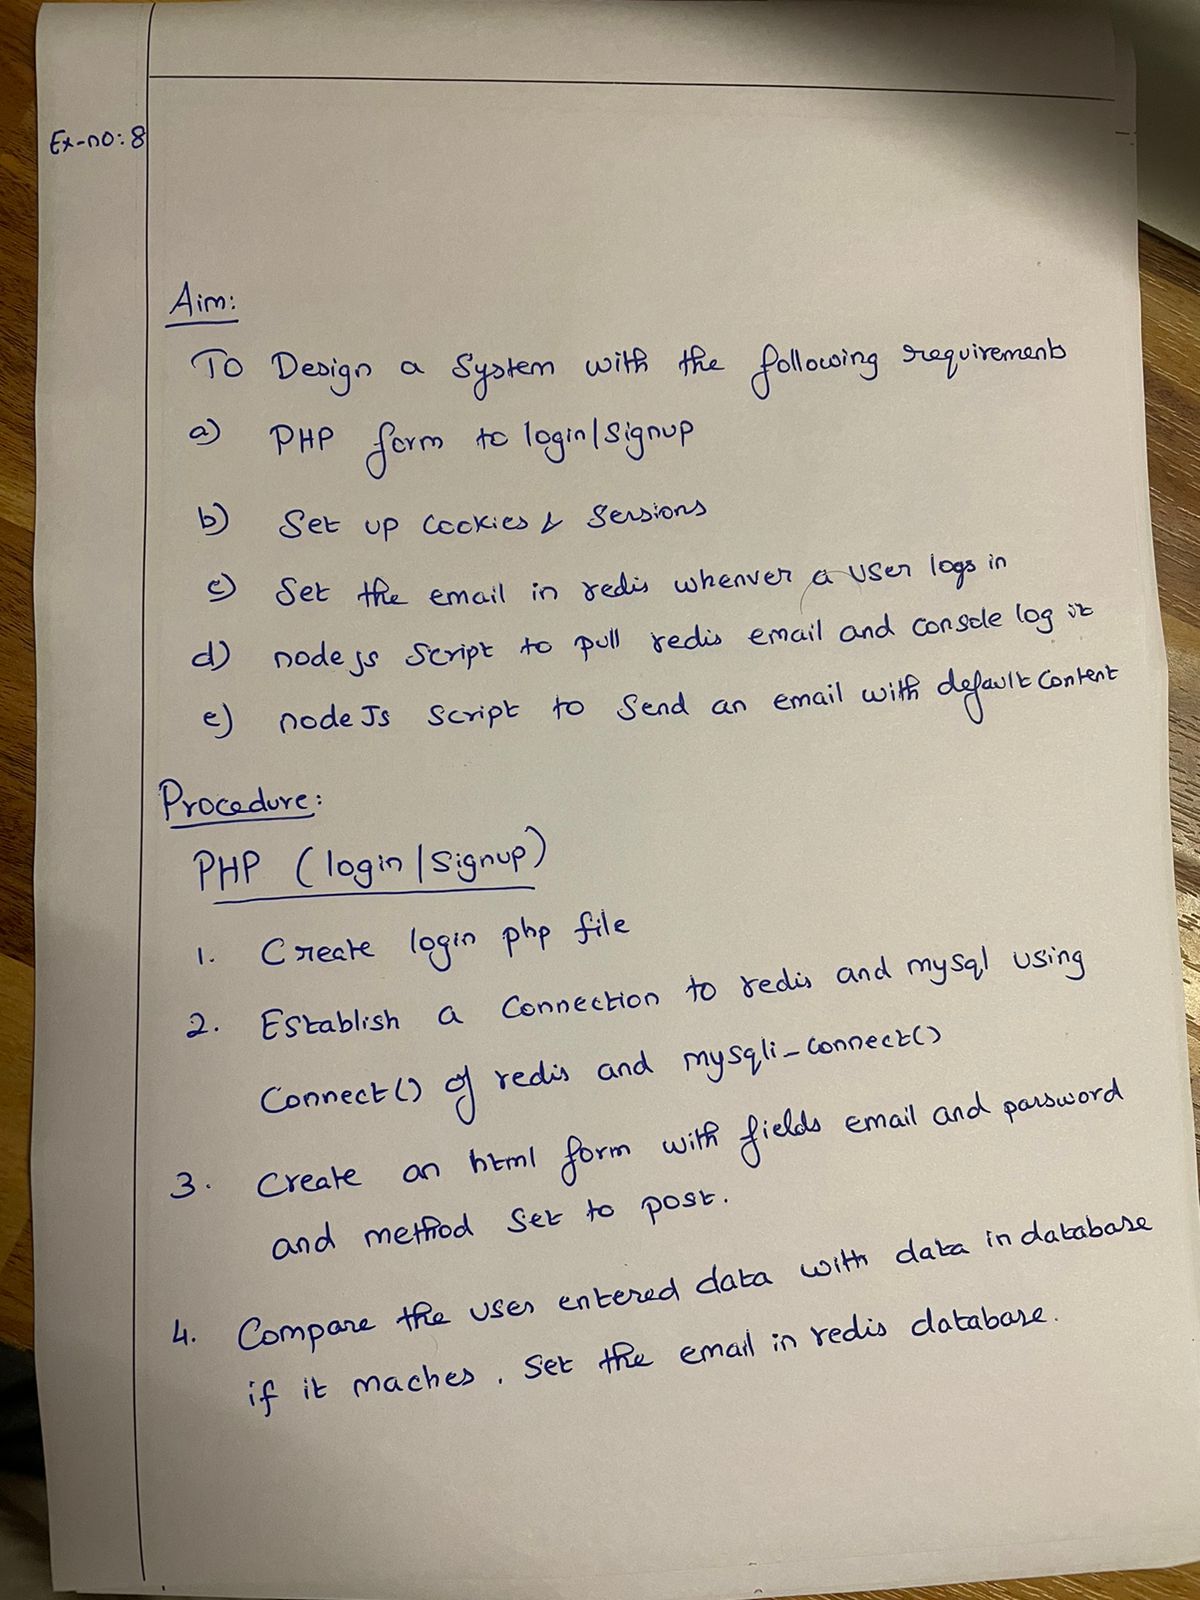 Ex-no: 8
Aim:
To Design a System with the following requirements
a) PHP form to login/signup
b) Set up Cookies & Sessions
c) Set the email in redis whenver a user logs in
d) node js Script to pull redis email and console log it
e) node Js Script to Send an email with default Content
Procedure:
PHP (login/signup)
1. Create login php file
2. Establish a Connection to redis and mysql using
Connect() of redis and mysqli_connect()
3. Create an html form with fields email and password
and method Set to post.
4. Compare the user entered data with data in database
if it maches. Set the email in redis database.